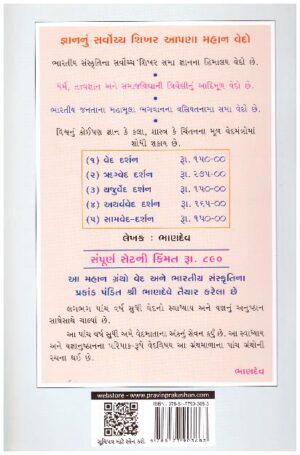 જ્ઞાનનું સર્વોચ્ચ શિખર આપણા મહાન વેદો
ભારતીય સંસ્કૃતિના સર્વોચ્ચ શિખર સમા જ્ઞાનના હિમાલય વેદો છે.
ધર્મ, તત્ત્વજ્ઞાન અને સમાજવિદ્યાની ત્રિવેણીનું આદિમૂળ વેદો છે.
ભારતીય જનતાના મહામૂલા ભગવાનના વસિયતનામા સમા વેદો છે.
વિશ્વનું કોઈપણ જ્ઞાન કે કલા, શાસ્ત્ર કે ચિંતનના મૂળ વેદમંત્રોમાં
શોધી શકાય છે.
(૧) વેદ દર્શન રૂા. ૧૫૦-૦૦
(૨) ઋગ્વેદ દર્શન રૂા. ૨૭૫-૦૦
(૩) યજુર્વેદ દર્શન રૂા. ૧૫૦-૦૦
(૪) અથર્વવેદ દર્શન રૂા. ૧૬૫-૦૦
(૫) સામવેદ-દર્શન રૂા. ૧૫૦-૦૦
લેખક : ભાણદેવ
સંપૂર્ણ સેટની કિંમત રૂા. ૮૯૦
આ મહાન ગ્રંથો વેદ અને ભારતીય સંસ્કૃતિના
પ્રકાંડ પંડિત શ્રી ભાણદેવે તૈયાર કરેલા છે
લગભગ પાંચ વર્ષ સુધી વેદનો સ્વાધ્યાય અને યજ્ઞનું અનુષ્ઠાન
સાથેસાથે ચાલ્યાં છે.
આ પાંચ વર્ષ સુધી અમે વેદમાતાના અંકનું સેવન કર્યું છે. આ સ્વાધ્યાય
અને યજ્ઞાનુષ્ઠાનના પરિપાક-રૂપે વેદવિષયક આ ગ્રંથમાળાના પાંચ ગ્રંથોની
રચના થઈ છે.
ભાણદેવ
webstore - www.pravinprakashan.com
સૂચિપત્ર માટે સ્કેન કરો.